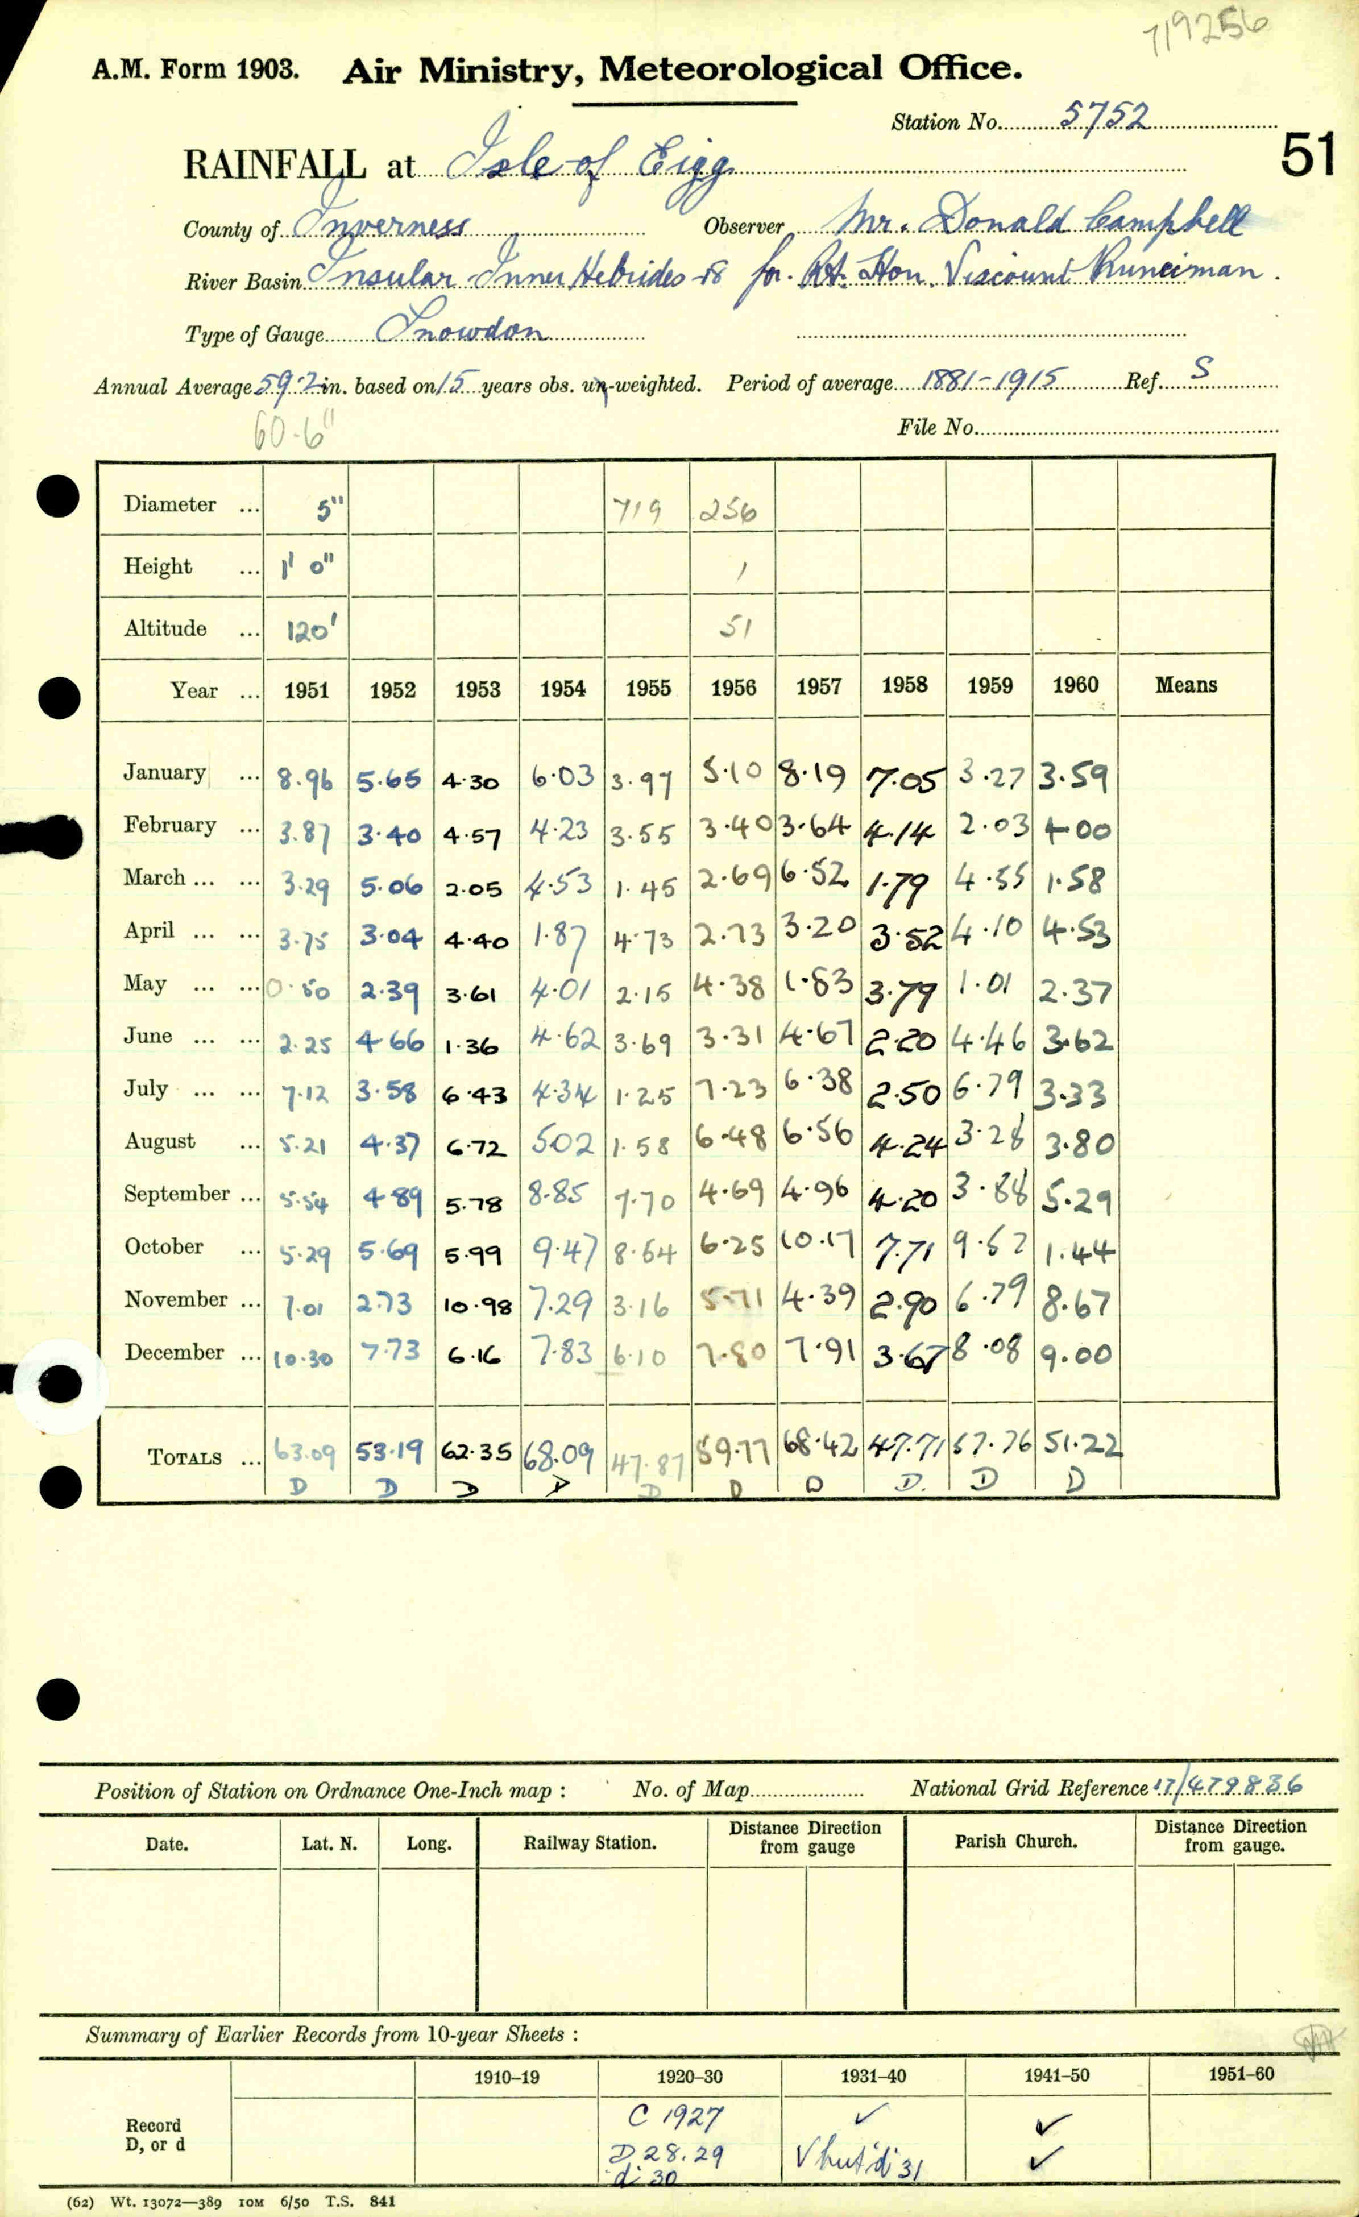 719256
A.M. Form 1903. Air Ministry, Meteorological Office.
Station No. 5752
RAINFALL at Isle of Eigg 51
County of Inverness Observer Mr. Donald Campbell
River Basin Insular Inner Hebrides - 18 for Rt. Hon. Viscount Runciman.
Type of Gauge Snowdon
Annual Average 59.2 in. based on 15 years obs. un-weighted. Period of average 1881-1915 Ref. S
60.6" File No.
Diameter ... 5" 719 256
Height ... 1' 0" 1
Altitude ... 120' 51
Year ... 1951 1952 1953 1954 1955 1956 1957 1958 1959 1960 Means
January ... 8.96 5.65 4.30 6.03 3.97 5.10 8.19 7.05 3.27 3.59
February ... 3.87 3.40 4.57 4.23 3.55 3.40 3.64 4.14 2.03 4.00
March ... ... 3.29 5.06 2.05 4.53 1.45 2.69 6.52 1.79 4.55 1.58
April ... ... 3.75 3.04 4.40 1.87 4.73 2.73 3.20 3.52 4.10 4.53
May ... ... 0.50 2.39 3.61 4.01 2.15 4.38 1.83 3.79 1.01 2.37
June ... ... 2.25 4.66 1.36 4.62 3.69 3.31 4.67 2.20 4.46 3.62
July ... ... 7.12 3.58 6.43 4.34 1.25 7.23 6.38 2.50 6.79 3.33
August ... 5.21 4.37 6.72 5.02 1.58 6.48 6.56 4.24 3.28 3.80
September ... 5.54 4.89 5.78 8.85 7.70 4.69 4.96 4.20 3.88 5.29
October ... 5.29 5.69 5.99 9.47 8.54 6.25 10.17 7.71 9.52 1.44
November ... 7.01 2.73 10.98 7.29 3.16 5.71 4.39 2.90 6.79 8.67
December ... 10.30 7.73 6.16 7.83 6.10 7.80 7.91 3.67 8.08 9.00
TOTALS ... 63.09 53.19 62.35 68.09 47.87 59.77 68.42 47.71 57.76 51.22
D D D D D D D D. D D
Position of Station on Ordnance One-Inch map : No. of Map National Grid Reference 17/479836
Date. Lat. N. Long. Railway Station. Distance from gauge Direction Parish Church. Distance from gauge. Direction
Summary of Earlier Records from 10-year Sheets :
1910–19 1920–30 1931–40 1941–50 1951–60
Record C 1927 ✓ ✓
D, or d D 28.29 ✓ but 'd' 31 ✓
d. 30
(62) Wt. 13072—389 10M 6/50 T.S. 841